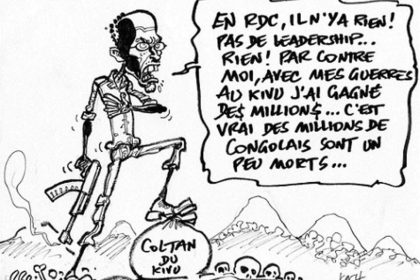 EN RDC, IL N'YA RIEN!
PAS DE LEADERSHIP...
RIEN! PAR CONTRE
MOI, AVEC MES GUERRES
AU KIVU J'AI GAGNÉ
DE$ MILLION$... C'EST
VRAI DES MILLIONS DE
CONGOLAIS SONT UN
PEU MORTS...
COLTAN
DU
KIVU